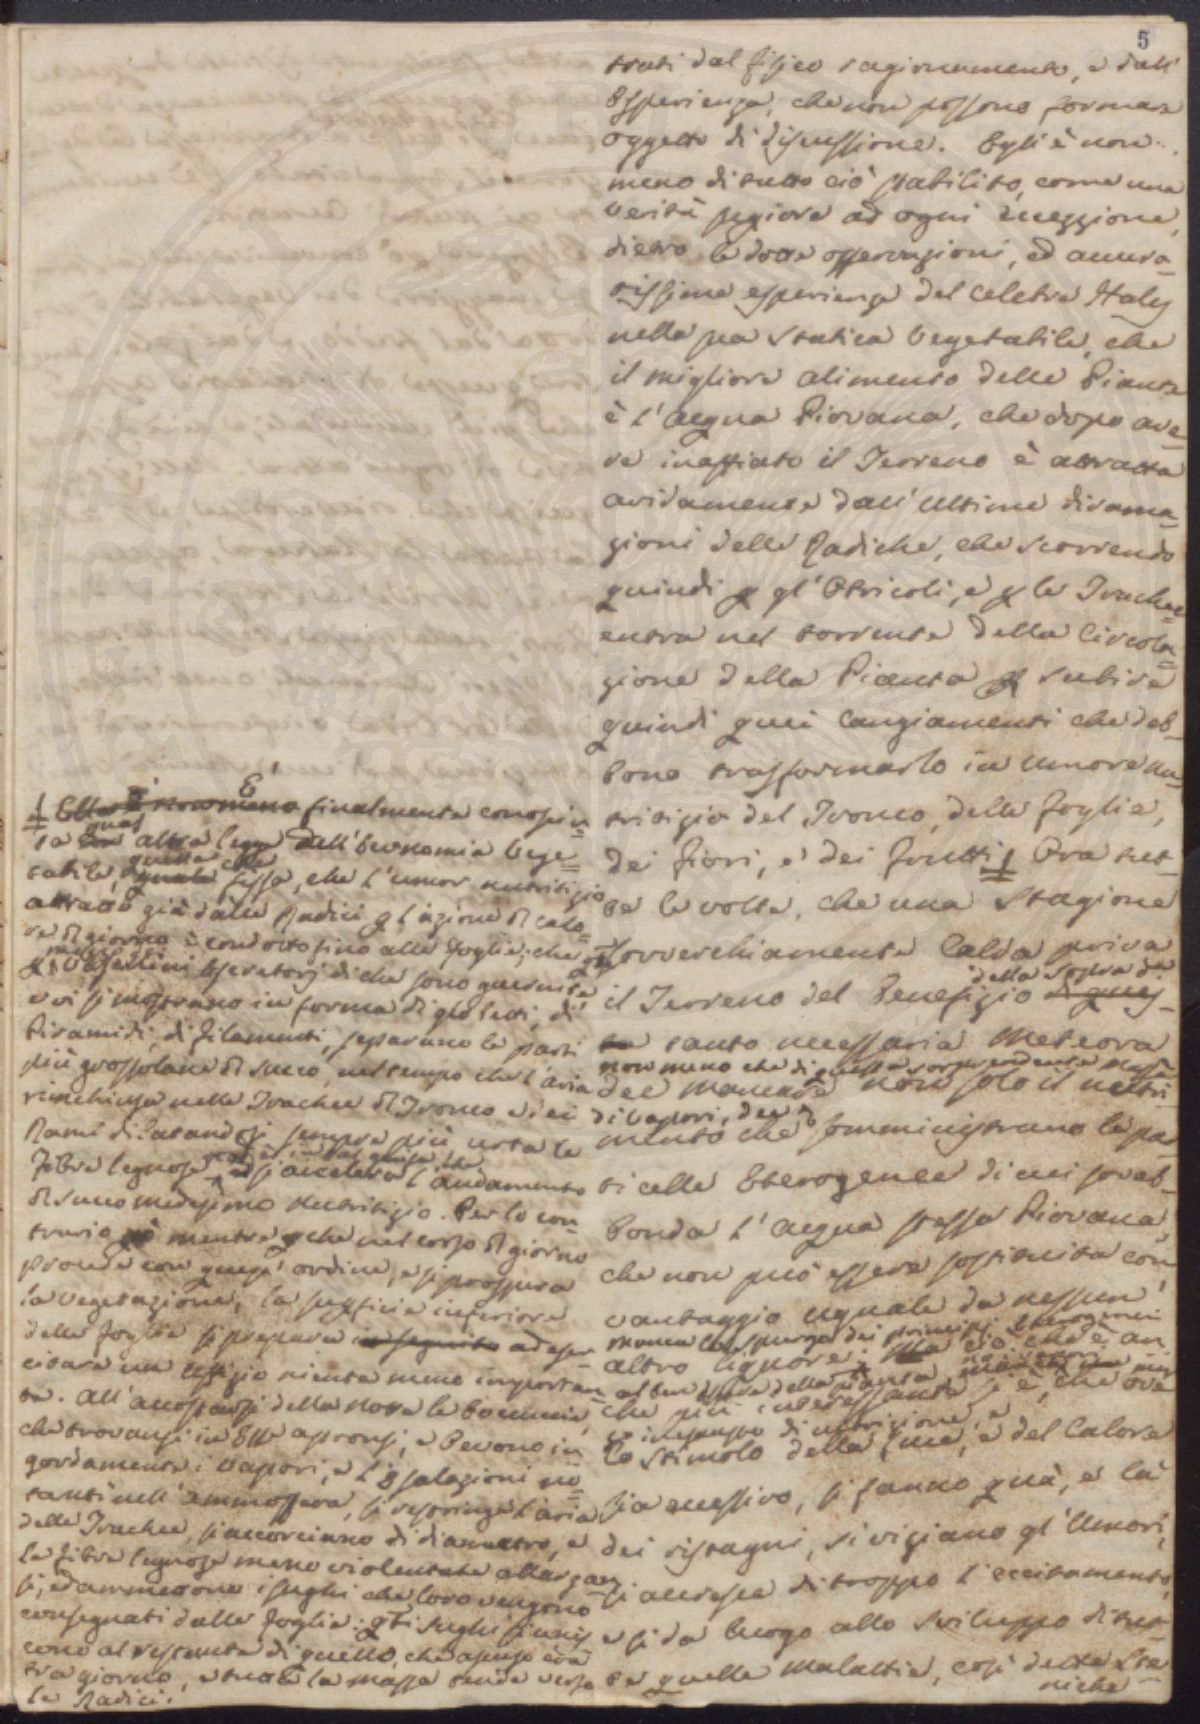 5
trati dal fisico ragionamento, e dall'
Esperienza, che non possono formare
oggetto di discussione. Egli è non
meno di tutto ciò stabilito, come una
verità superiore ad ogni eccezzione,
dietro le dotte osservazioni, ed accura-
tissime esperienze del celebre Haly
nella sua Statica Vegetabile, che
il migliore alimento delle Piante
è l'acqua Piovana, che dopo ave=
re inaffiato il Terreno è attratta
avidamente dall'ultime dirama=
zioni delle Radiche, che scorrendo
quindi p gl'Otricoli, e p le Trachee
entra nel torrente della Circola=
zione della Pianta p subire
quindi quei Cangiamenti che deb=
bono trasformarlo in umore nu=
tritizio del Tronco, delle foglie,
dei fiori, e dei frutti ‡ Ora tut=
te le volte, che una Stagione
sovverchiamente Calda priva
il Terreno del Benefizio della di ques=
ta tanto necessaria Meteora
non meno che di questa sorprendente massa
di vapori, dee mancare non solo il nutri=
mento che somministrano le pa=
ticelle Eterogenee di cui soprab=
bonda l'acqua stessa Piovana,
che non può essere sostituita con
vantaggio uguale da nessun'
altro liquore; ma ciò che è an
che più interessante si è, che ove
lo stimolo della luce, e del Calore
sia eccessivo, si fanno quà, e là
dei ristagni, si viziano gl'Umori,
si accresce di troppo l'eccitamento
e si dà luogo allo sviluppo di tut=
te quelle Malattie, così dette Ste=
niche
‡ È finalmente conosciu=
ta altra legge dell'Economia Vege=
tabile, quella che fissa, che l'umor nutritizio
attratto già dalle Radici p l'azione di calo=
re di giorno è condotto fino alle foglie; che
p i Vasellini escretorj di che sono guernite
e vi si mostrano in forma di globetti, di
Piramidi, di filamenti, separano le parti
più grossolane di succo, nel tempo che l'aria
rinchiusa nelle Trachee di Tronco e dei
Rami dilatandosi sempre più urta le
fibre legnose, e si accelera l'andamento
di succo medesimo Nutritizio. Per lo con=
trario mentre che nel corso di giorno
procede con quest'ordine, e si prospera
la vegetazione, la superficie inferiore
delle foglie si prepara in seguito ad eser=
citare un uffizio niente meno importan=
te. All'accostarsi della notte le boccuccie,
che trovansi in Esse apronsi, e bevono in
gordamente i vapori, e l'esalazioni no=
tanti nell'atmosfera, si restringe l'aria
delle Trachee, si accorciano di diametro, e
le fibre legnose meno violentate allargan
si, ed ammettono i sughi che loro vengono
consegnati dalle foglie: gl.i sughi si unis
cono al restante di quello, che asceso era
tra giorno, e tutta la massa tende verso
le Radici.